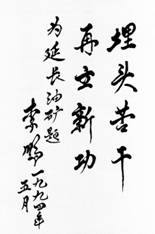 埋头苦干
再立新功
为延长油矿题
李鹏
一九九四年
五月